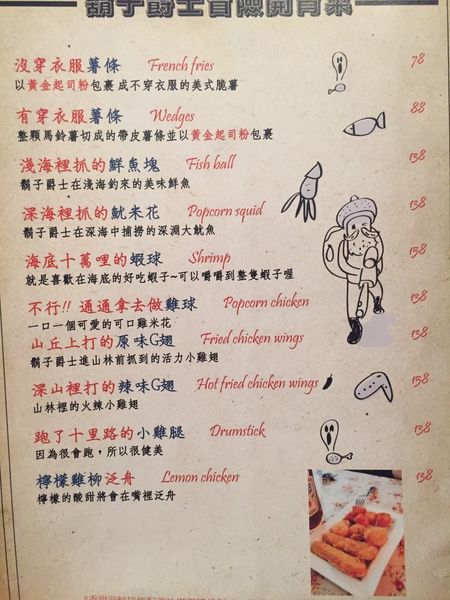 鬍子爵士冒險開胃菜
沒穿衣服薯條 French fries 78
以黃金起司粉包裹 成不穿衣服的美式脆薯
有穿衣服薯條 Wedges 88
整顆馬鈴薯切成的帶皮薯條並以黃金起司粉包裹
淺海裡抓的鮮魚塊 Fish ball 138
鬍子爵士在淺海釣來的美味鮮魚
深海裡抓的魷米花 Popcorn squid 138
鬍子爵士在深海中捕撈的深淵大魷魚
海底十萬哩的蝦球 Shrimp 158
就是喜歡在海底的好吃蝦子~可以嚼嚼到整隻蝦子喔
不行!! 通通拿去做雞球 Popcorn chicken 138
一口一個可愛的可口雞米花
山丘上打的原味G翅 Fried chicken wings 138
鬍子爵士進山林前抓到的活力小雞翅
深山裡打的辣味G翅 Hot fried chicken wings 158
山林裡的火辣小雞翅
跑了十里路的小雞腿 Drumstick 138
因為很會跑，所以很健美
檸檬雞柳泛舟 Lemon chicken 138
檸檬的酸甜將會在嘴裡泛舟